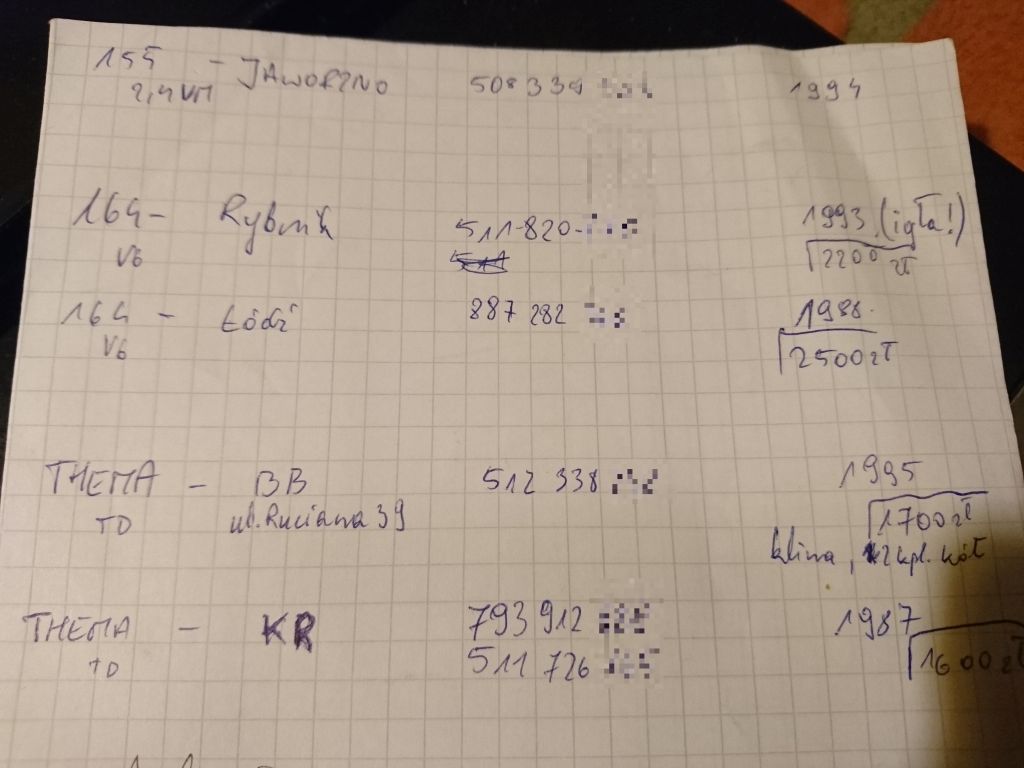 155 - JAWORZNO 508 339 1994
2,4 VM
164 - Rybnik 511-820- 1993 (igła!)
V6 2200 zł
164 - Łódź 887 282 1988.
V6 2500 zł
THEMA - BB 512 338 1995
TD ul. Ruciana 39 1700 zł
klima, 2 kpl. kół
THEMA - KR 793 912 1987
TD 511 726 1600 zł